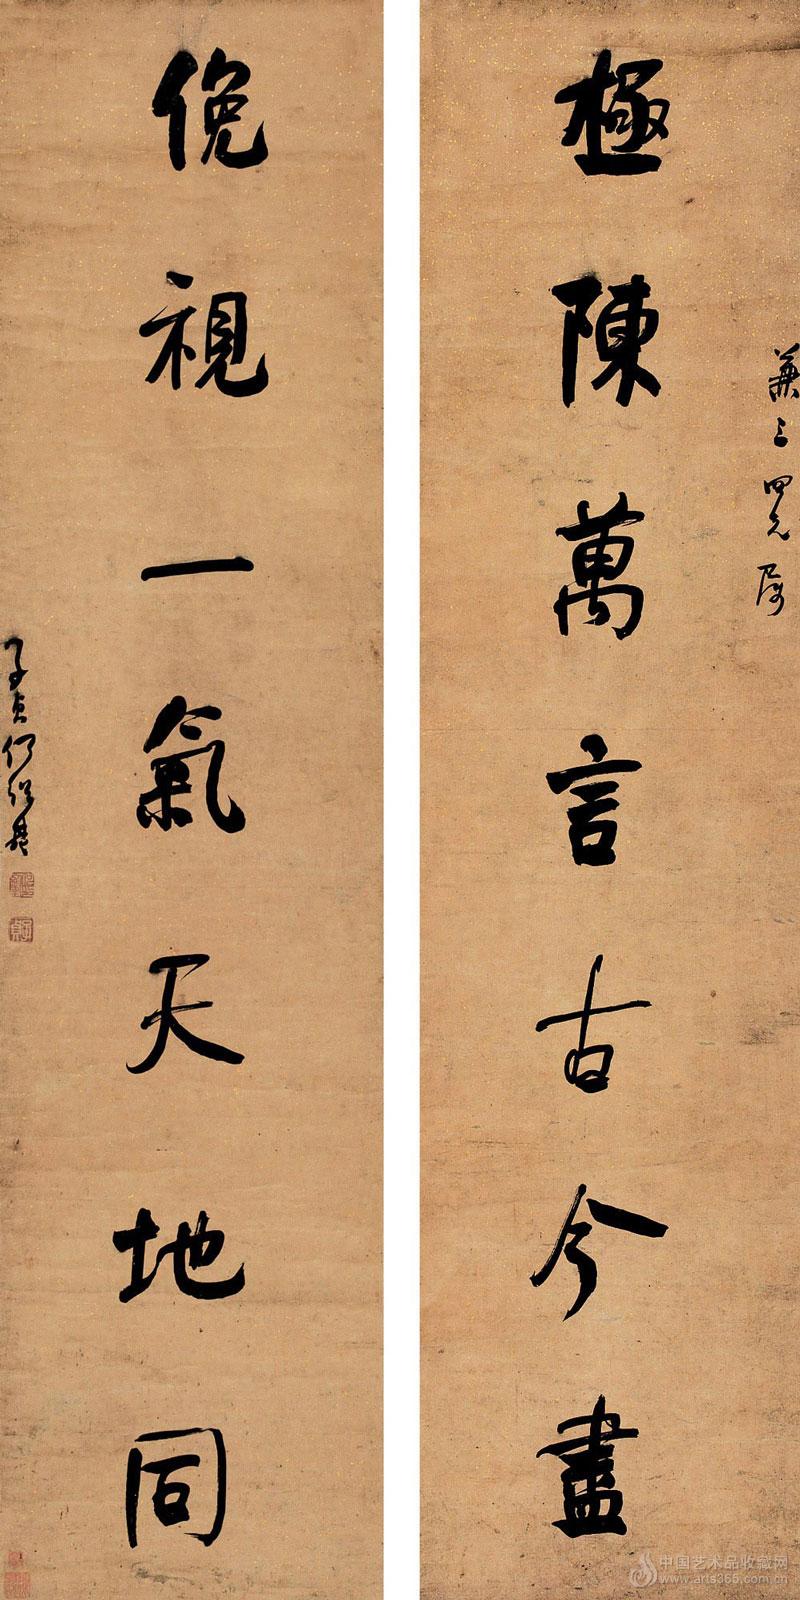 極陳萬言古今盡
兼三四兄屬
俛視一氣天地同
子貞何紹基
中国艺术品收藏网
www.arts365.com.cn